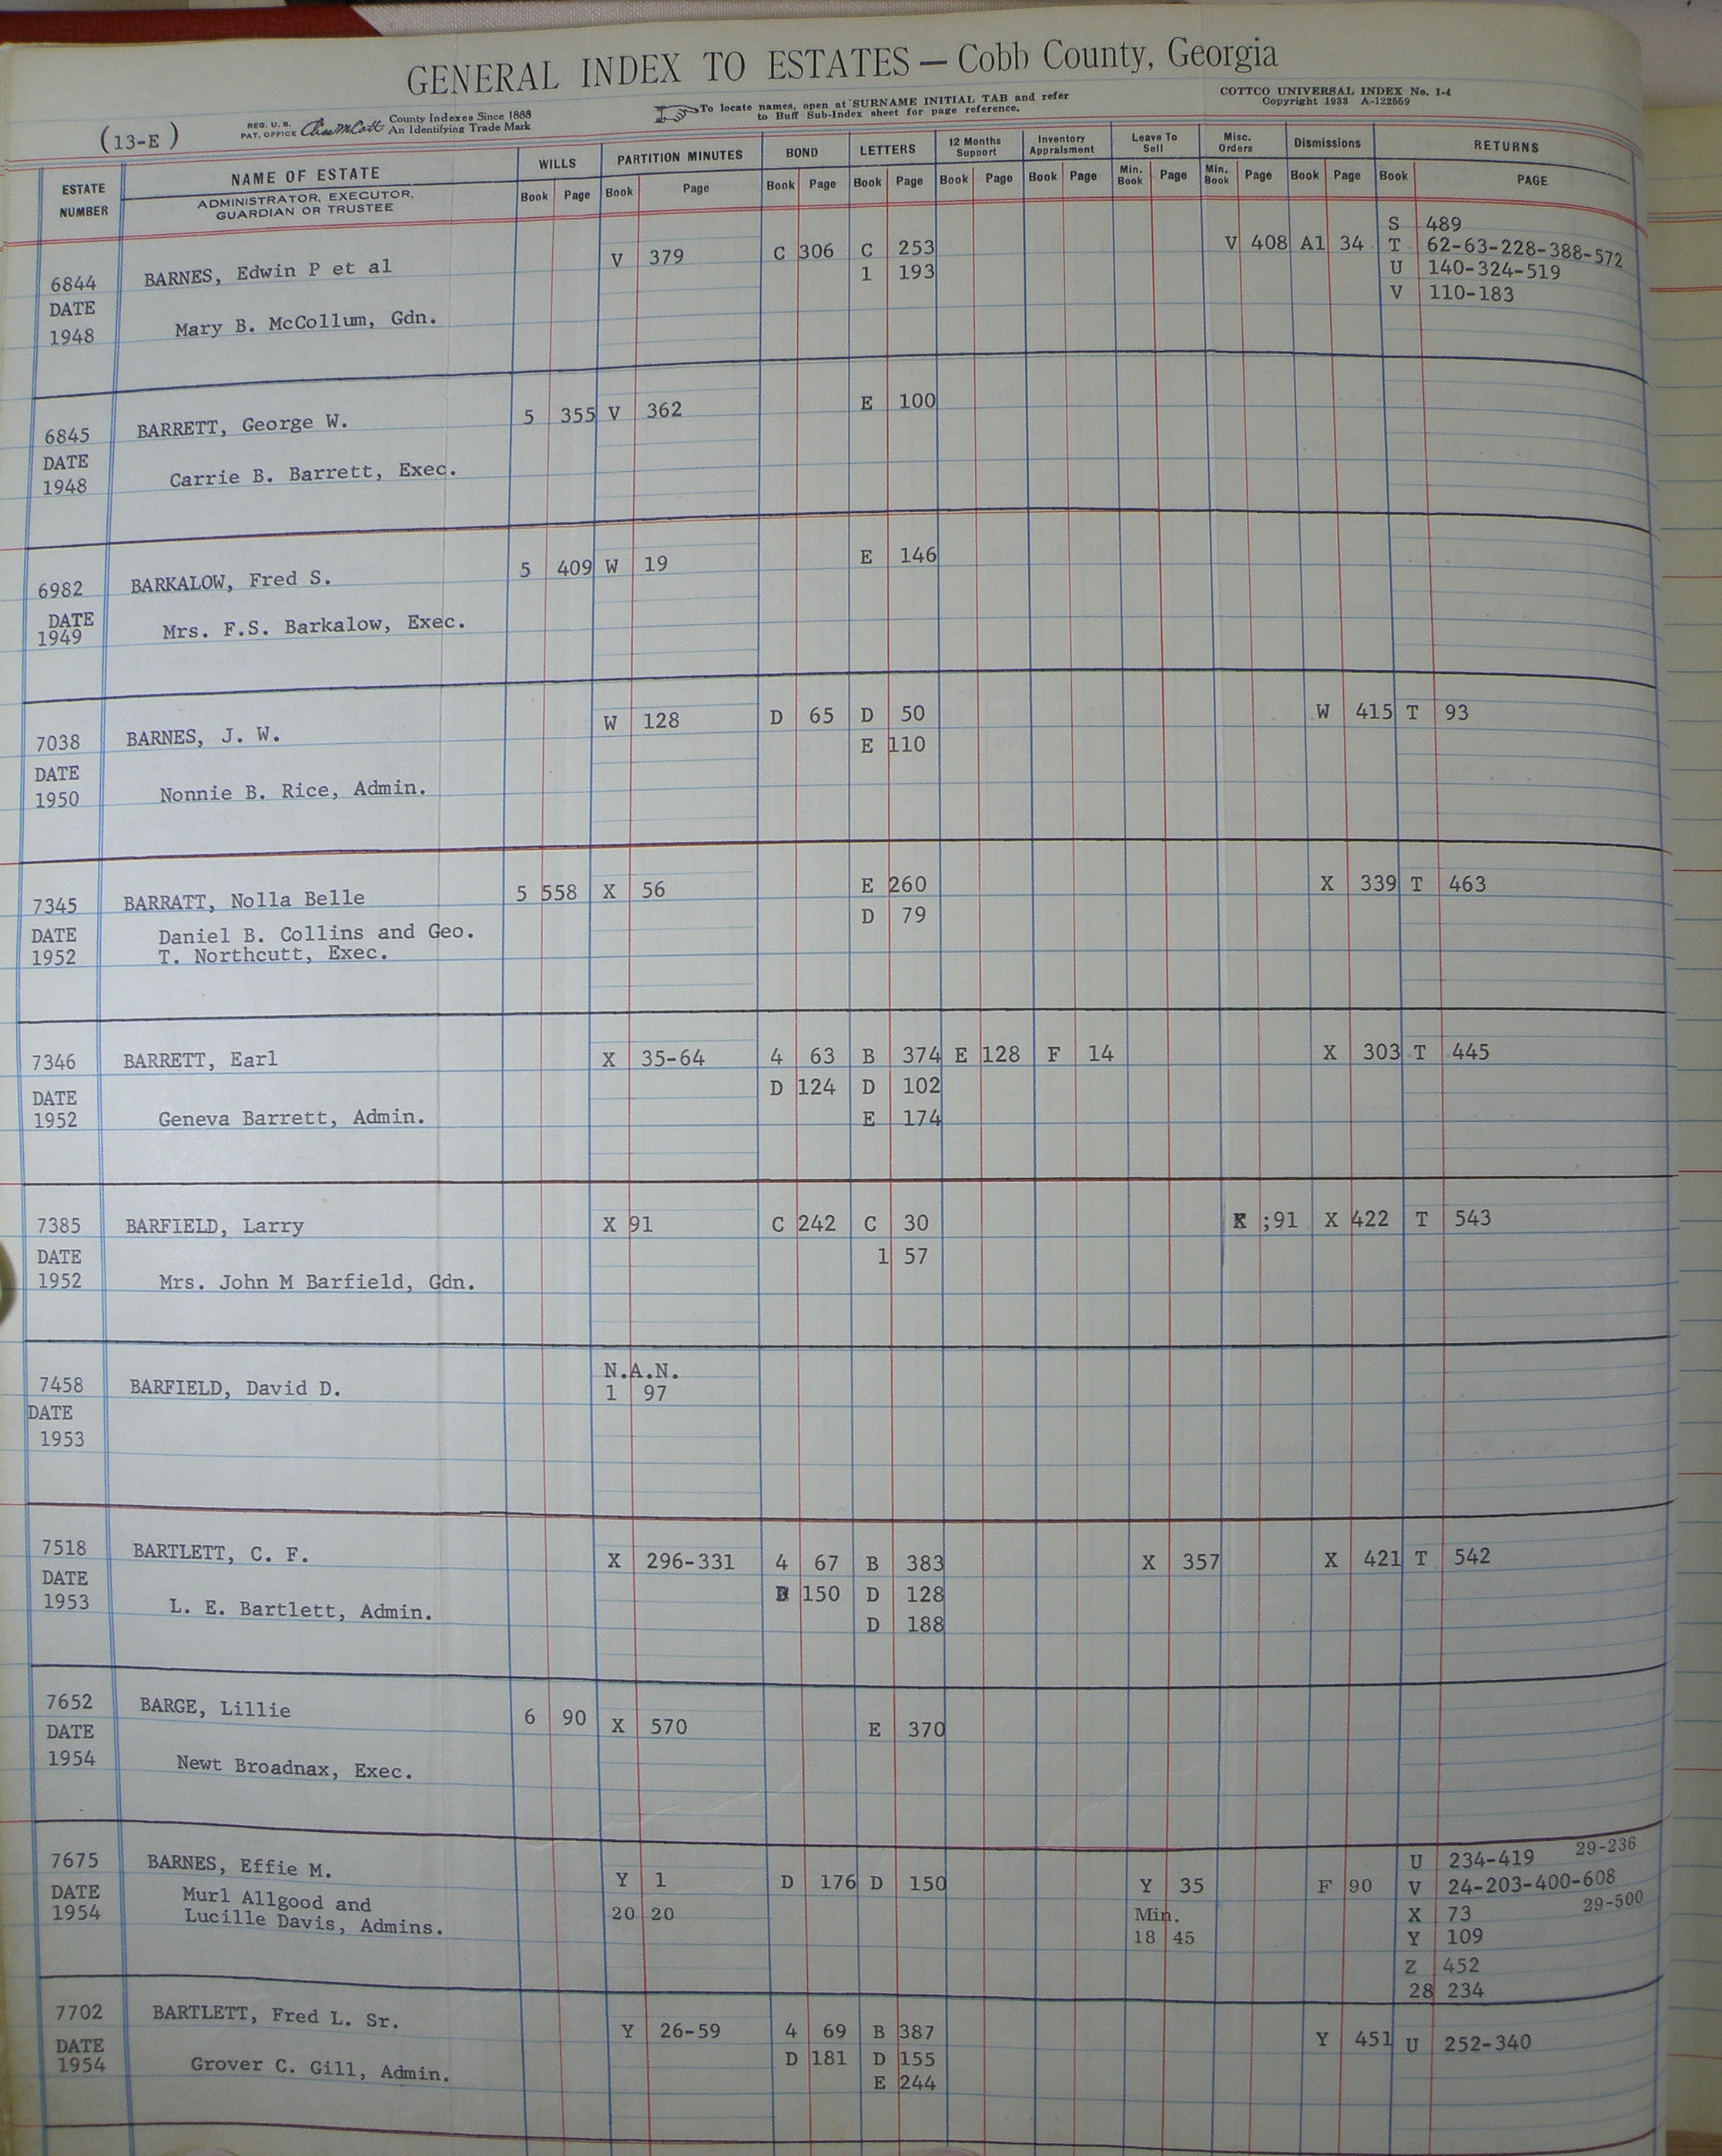 GENERAL INDEX TO ESTATES — Cobb County, Georgia
(13-E)
REG. U. S. PAT. OFFICE County Indexes Since 1888 An Identifying Trade Mark
To locate names, open at SURNAME INITIAL TAB and refer to Buff Sub-Index sheet for page reference.
COTTCO UNIVERSAL INDEX No. 1-4
Copyright 1933 A-122559
ESTATE NUMBER
NAME OF ESTATE
ADMINISTRATOR, EXECUTOR, GUARDIAN OR TRUSTEE
WILLS PARTITION MINUTES BOND LETTERS 12 Months Support Inventory Appraisment Leave To Sell Misc. Orders Dismissions RETURNS
Book Page Book Page Book Page Book Page Book Page Book Page Min. Book Page Min. Book Page Book Page Book PAGE
S 489
6844 BARNES, Edwin P et al V 379 C 306 C 253 V 408 A1 34 T 62-63-228-388-572
1 193 U 140-324-519
DATE V 110-183
1948 Mary B. McCollum, Gdn.
6845 BARRETT, George W. 5 355 V 362 E 100
DATE
1948 Carrie B. Barrett, Exec.
6982 BARKALOW, Fred S. 5 409 W 19 E 146
DATE
1949 Mrs. F.S. Barkalow, Exec.
7038 BARNES, J. W. W 128 D 65 D 50 W 415 T 93
E 110
DATE
1950 Nonnie B. Rice, Admin.
7345 BARRATT, Nolla Belle 5 558 X 56 E 260 X 339 T 463
D 79
DATE Daniel B. Collins and Geo.
1952 T. Northcutt, Exec.
7346 BARRETT, Earl X 35-64 4 63 B 374 E 128 F 14 X 303 T 445
DATE D 124 D 102
1952 Geneva Barrett, Admin. E 174
7385 BARFIELD, Larry X 91 C 242 C 30 ;91 X 422 T 543
DATE 1 57
1952 Mrs. John M Barfield, Gdn.
N.A.N.
7458 BARFIELD, David D. 1 97
DATE
1953
7518 BARTLETT, C. F. X 296-331 4 67 B 383 X 357 X 421 T 542
DATE 150 D 128
1953 L. E. Bartlett, Admin. D 188
7652 BARGE, Lillie 6 90 X 570 E 370
DATE
1954 Newt Broadnax, Exec.
7675 BARNES, Effie M. Y 1 D 176 D 150 Y 35 F 90 U 234-419 29-236
DATE Murl Allgood and 20 20 Min. V 24-203-400-608
1954 Lucille Davis, Admins. 18 45 X 73 29-500
Y 109
Z 452
28 234
7702 BARTLETT, Fred L. Sr. Y 26-59 4 69 B 387 Y 451 U 252-340
DATE D 181 D 155
1954 Grover C. Gill, Admin. E 244